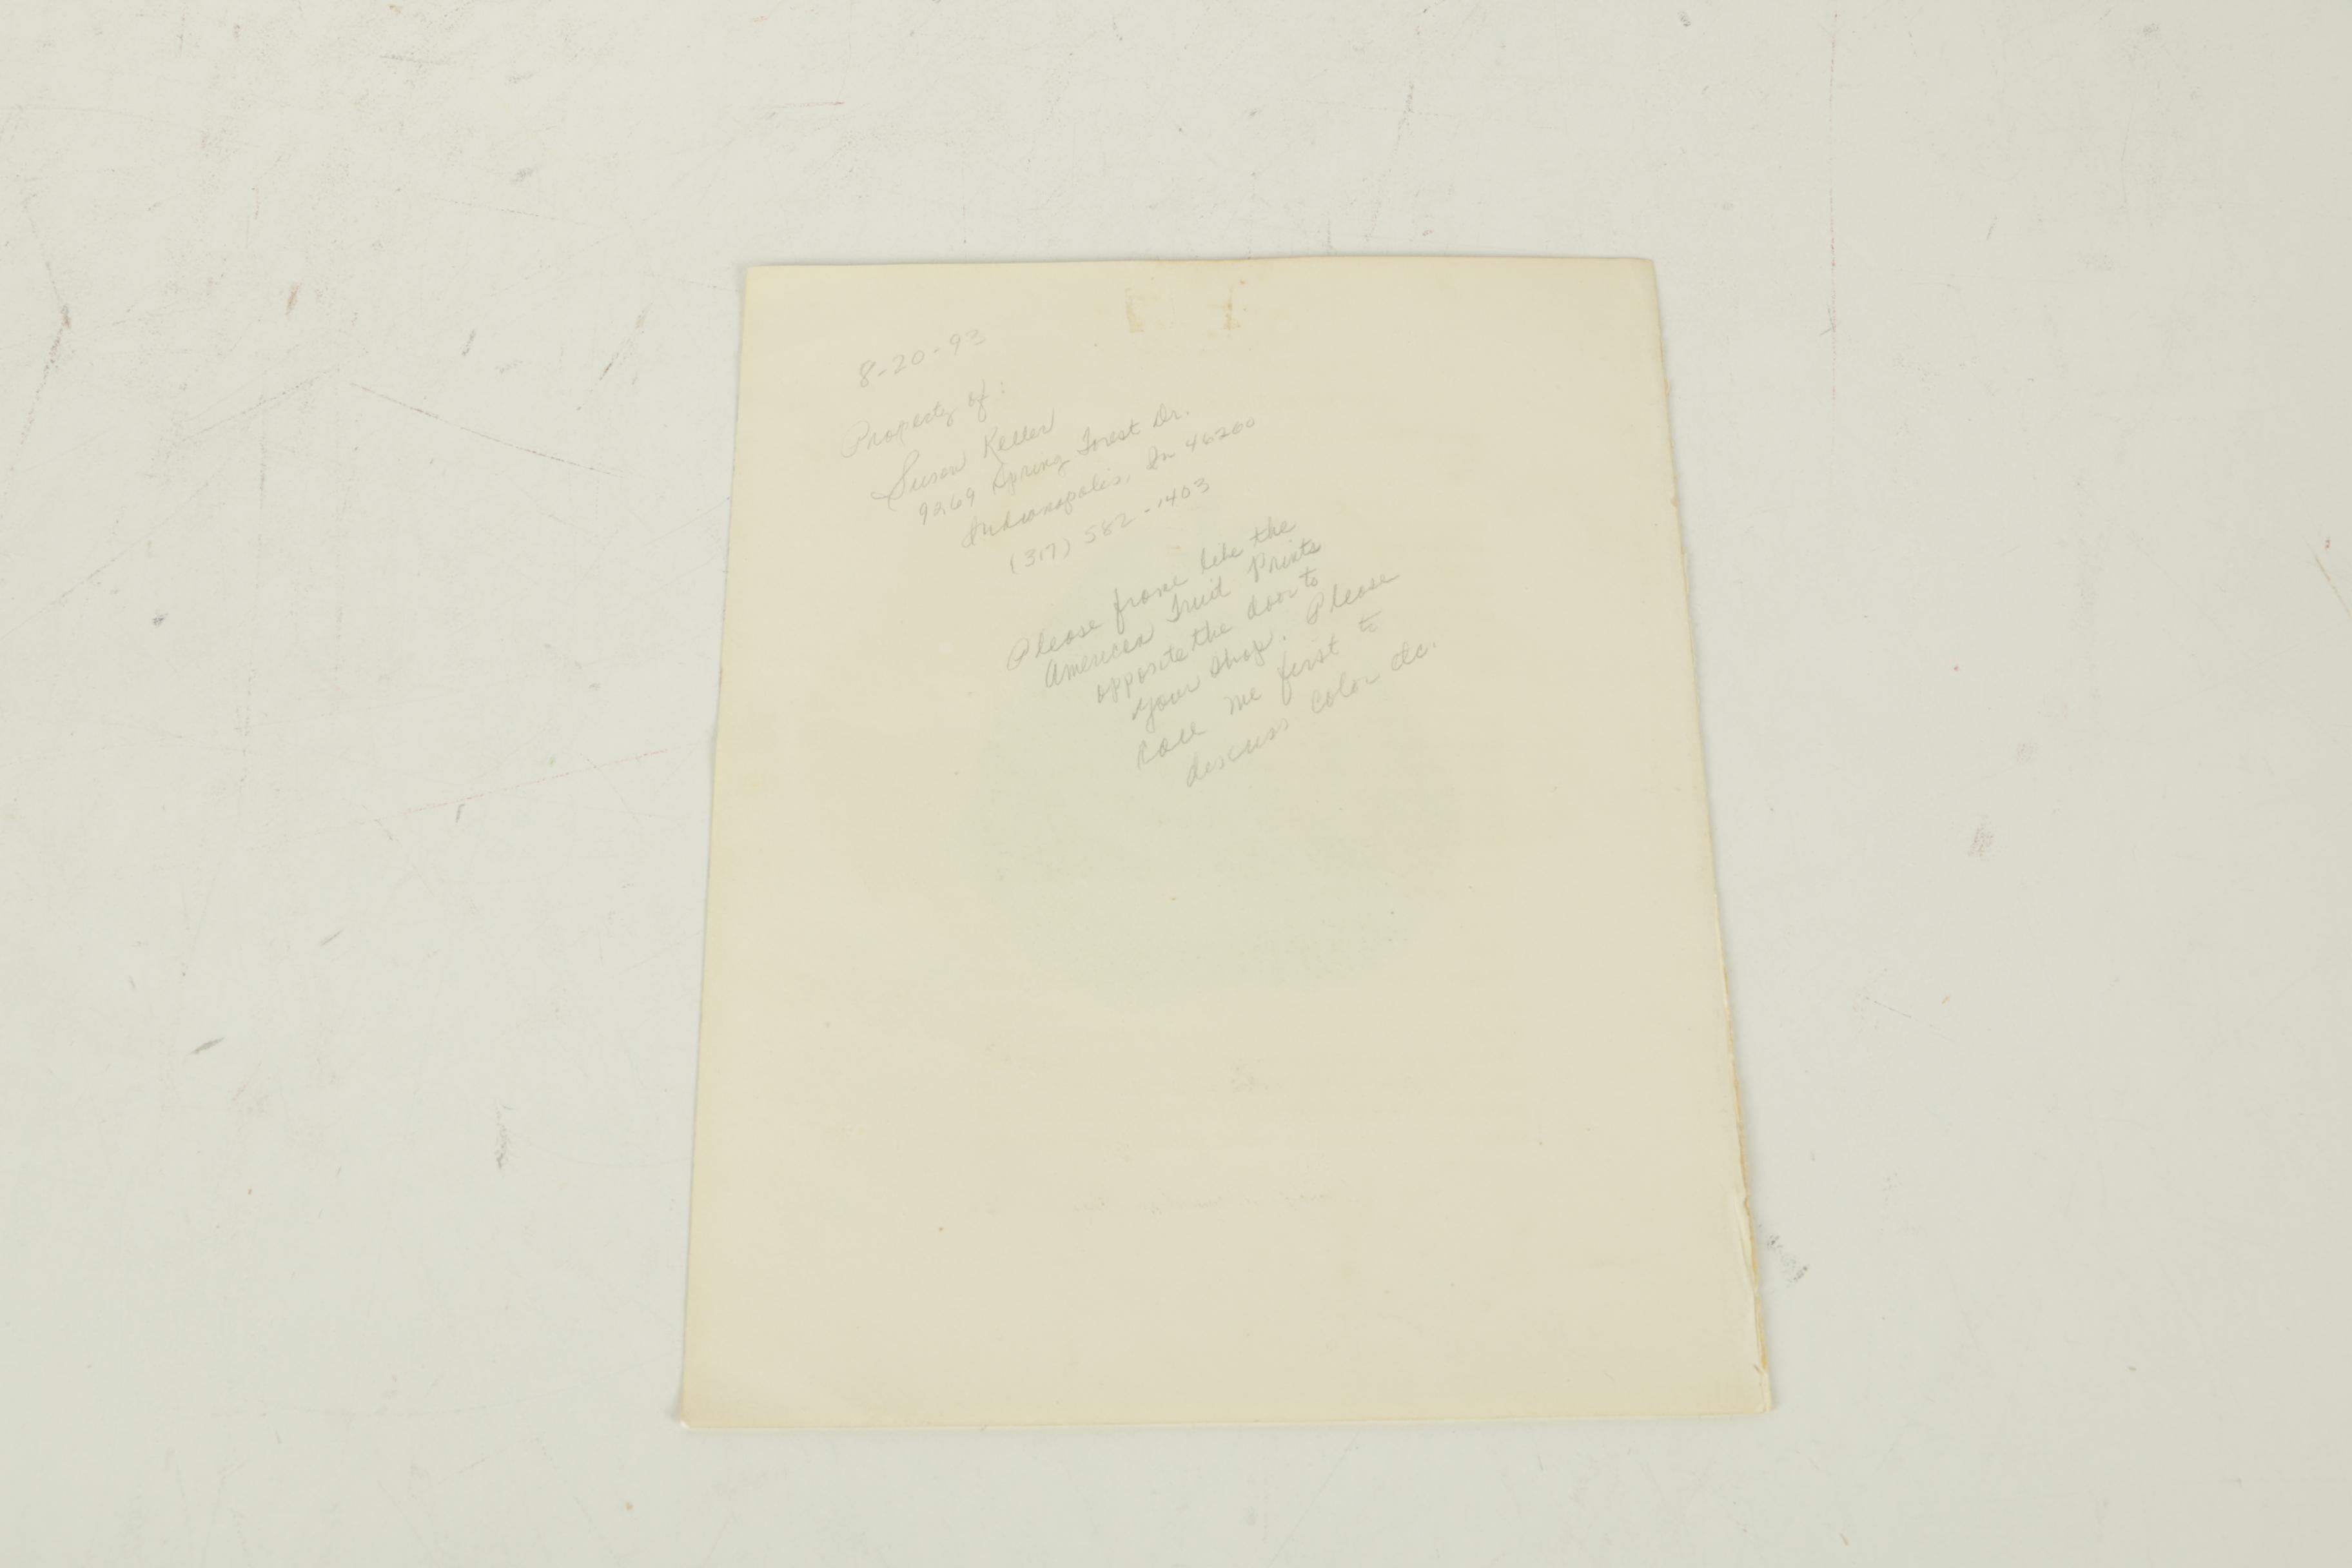 8-20-93
Property of:
Susan Keller
9269 Spring Forest Dr.
Indianapolis, In 46260
(317) 582-1403
Please frame like the
American Fruit Prints
opposite the door to
your shop. Please
call me first to
discuss color etc.